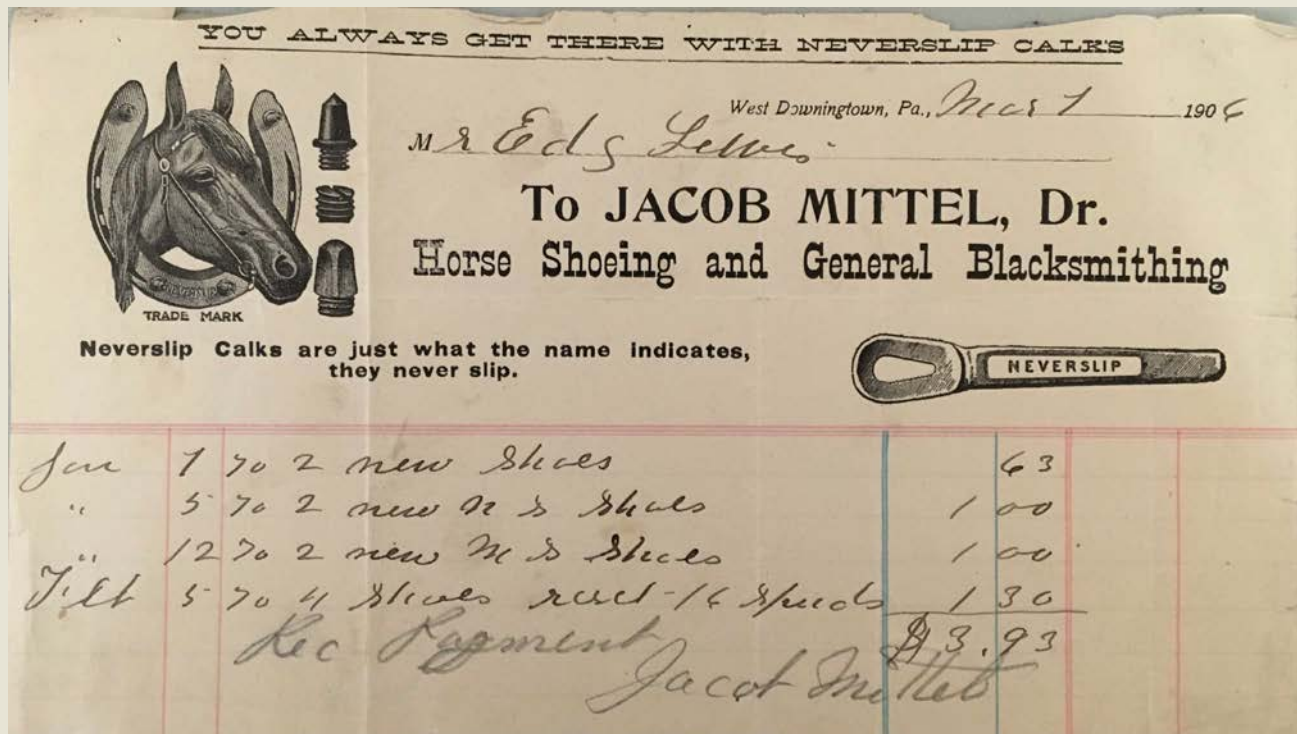 YOU ALWAYS GET THERE WITH NEVERSLIP CALKS
West Downingtown, Pa., Mar 1 1906
Mr Ed S Lewis
To JACOB MITTEL, Dr.
Horse Shoeing and General Blacksmithing
NEVERSLIP
TRADE MARK
Neverslip Calks are just what the name indicates,
they never slip.
NEVERSLIP
Jan 1 To 2 new Shoes 63
" 5 To 2 new N S Shoes 1 00
" 12 To 2 new N S Shoes 1 00
5 To 4 Shoes reset 16 1 30
Rec Payment $3.93
Jacob Mittel